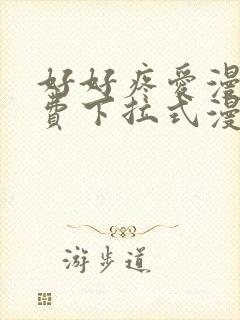 好好疼爱漫
费下拉式漫
游步道